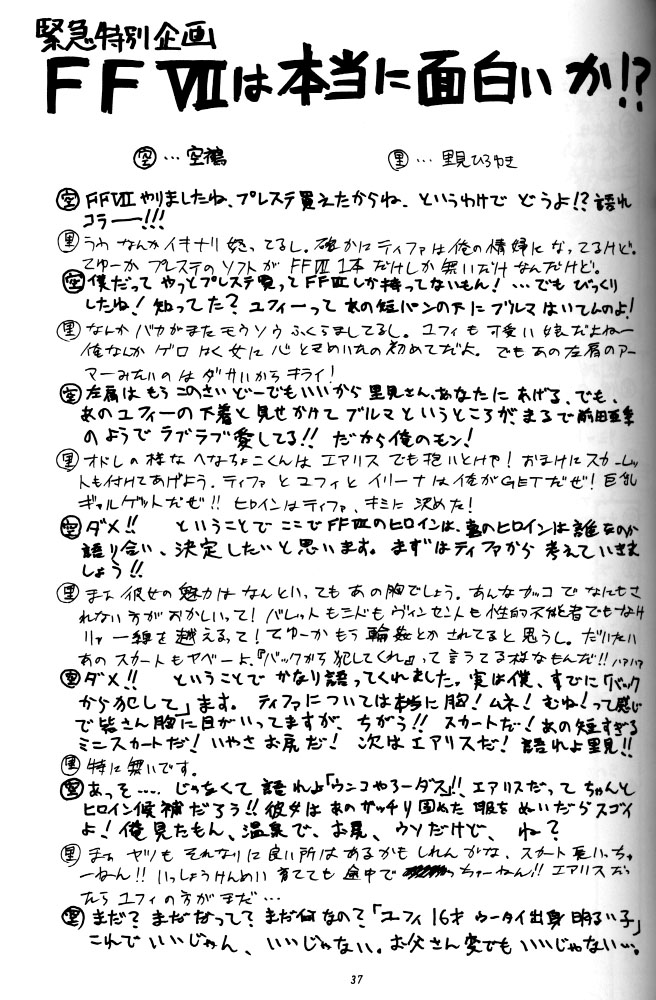 緊急特別企画
FFⅦは本当に面白いか!?
空…空鵺
里…里見ひろゆき
空 FFⅦやりましたね、プレステ買えたからね、というわけで どうよ!? 語れ
コラーー!!!
里 うわ なんかイキナリ怒ってるし。確かにティファは俺の情婦になってるけど。
てゆーか プレステのソフトが FFⅦ1本だけしか無いだけなんだけど。
空 僕だって やっとプレステ買ってFFⅦしか持ってないもん! …でも びっくり
したね! 知ってた? ユフィーって あの短パンの下に ブルマはいてんのよ!
里 なんか バカがまたモウソウふくらましてるし。ユフィも可愛い娘だよねー
俺なんか ゲロはく女に心ときめいたの初めてだよ。でもあの左肩のアー
マーみたいのは ダサいからキライ!
空 左肩は もう このさい どーでもいいから 里見さん、あなたに あげる、でも、
あのユフィーの下着と見せかけて ブルマというところが、まるで前田亜季
のようで ラブラブ愛してる!! だから俺のモン!
里 オドレの様な へなちょこくんは エアリスでも抱いとけや! おまけにスカーレッ
トも付けてあげよう。ティファとユフィとイリーナは俺がGETだぜ! 巨乳
ギャルゲットだぜ!! ヒロインはティファ、キミに決めた!
空 ダメ!! ということで ここでFFⅦのヒロインは、真のヒロインは誰なのか
語り合い、決定したいと思います。まずはティファから 考えていきま
しょう!!
里 まァ 彼女の魅力はなんといっても あの胸でしょう。あんなカッコで なにもさ
れない方がおかしいって! バレットもシドも ヴィンセントも性的不能者でもなけ
リャ 一線を越えるって! てゆーか もう輪姦とかされてると思うし。だいたい
あのスカートもヤベーよ、『バックから犯してくれ』って言うてる様なもんだ!! ハァハァ
空 ダメ!! ということで かなり語ってくれました。実は僕、すでに「バック
から犯して」ます。 ティファについては本当に胸! ムネ! むね! って感じ
で皆さん胸に目がいってますが、ちがう!! スカートだ! あの短すぎる
ミニスカートだ! いやさお尻だ! 次はエアリスだ! 語れよ里見!!
里 特に無いです。
空 あっそ…. じゃなくて 語れよ「ウンコやろーダス」!! エアリスだって ちゃんと
ヒロイン候補だろう!! 彼女は あのガッチリ固めた服をぬいだらスゴイ
よ! 俺見たもん、温泉で、お尻、ウソだけど、 ね?
里 まァ ヤツも それなりに良い所はあるかもしれんがな、スカート長いっちゅ
ーねん!! いっしょうけんめい育てても途中で っちゅーねん!! エアリスだっ
たら ユフィの方がまだ…
空 まだ? まだなって? まだ何なの? 「ユフィ16才 ウータイ出身 明るい子」
これで いいじゃん、いいじゃない。お父さん変でもいいじゃない…。
37